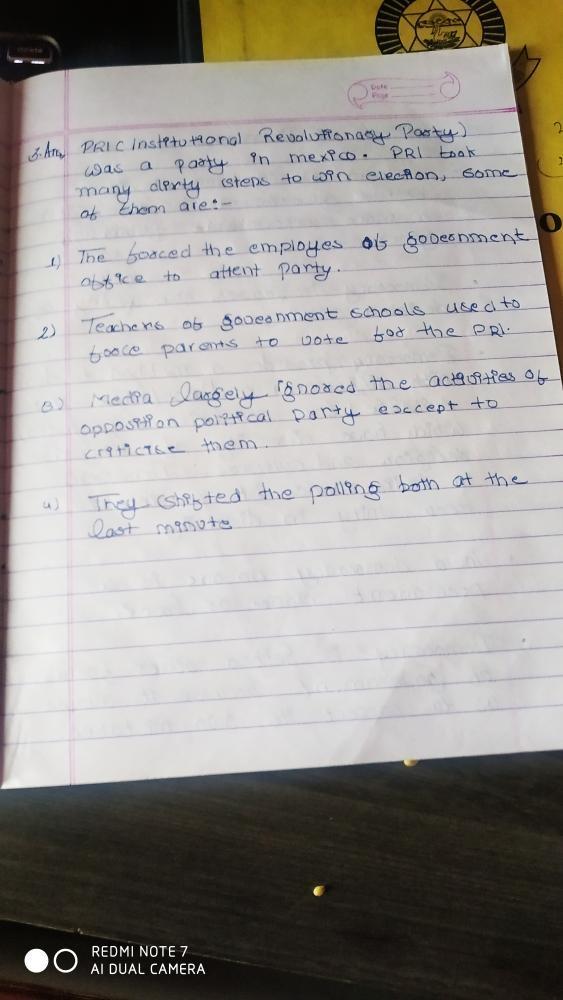 Date
Page
3. Ans PRI C institutional Revolutionary Party)
was a party in mexico. PRI took
many dirty steps to win election, some
of them are:-
1) The forced the employes of government
office to attent party.
2) Teachers of government schools used to
force parents to vote for the PRI.
3) Media largely ignored the activities of
opposition political party except to
criticise them.
4) They shifted the polling both at the
last minute
REDMI NOTE 7
AI DUAL CAMERA